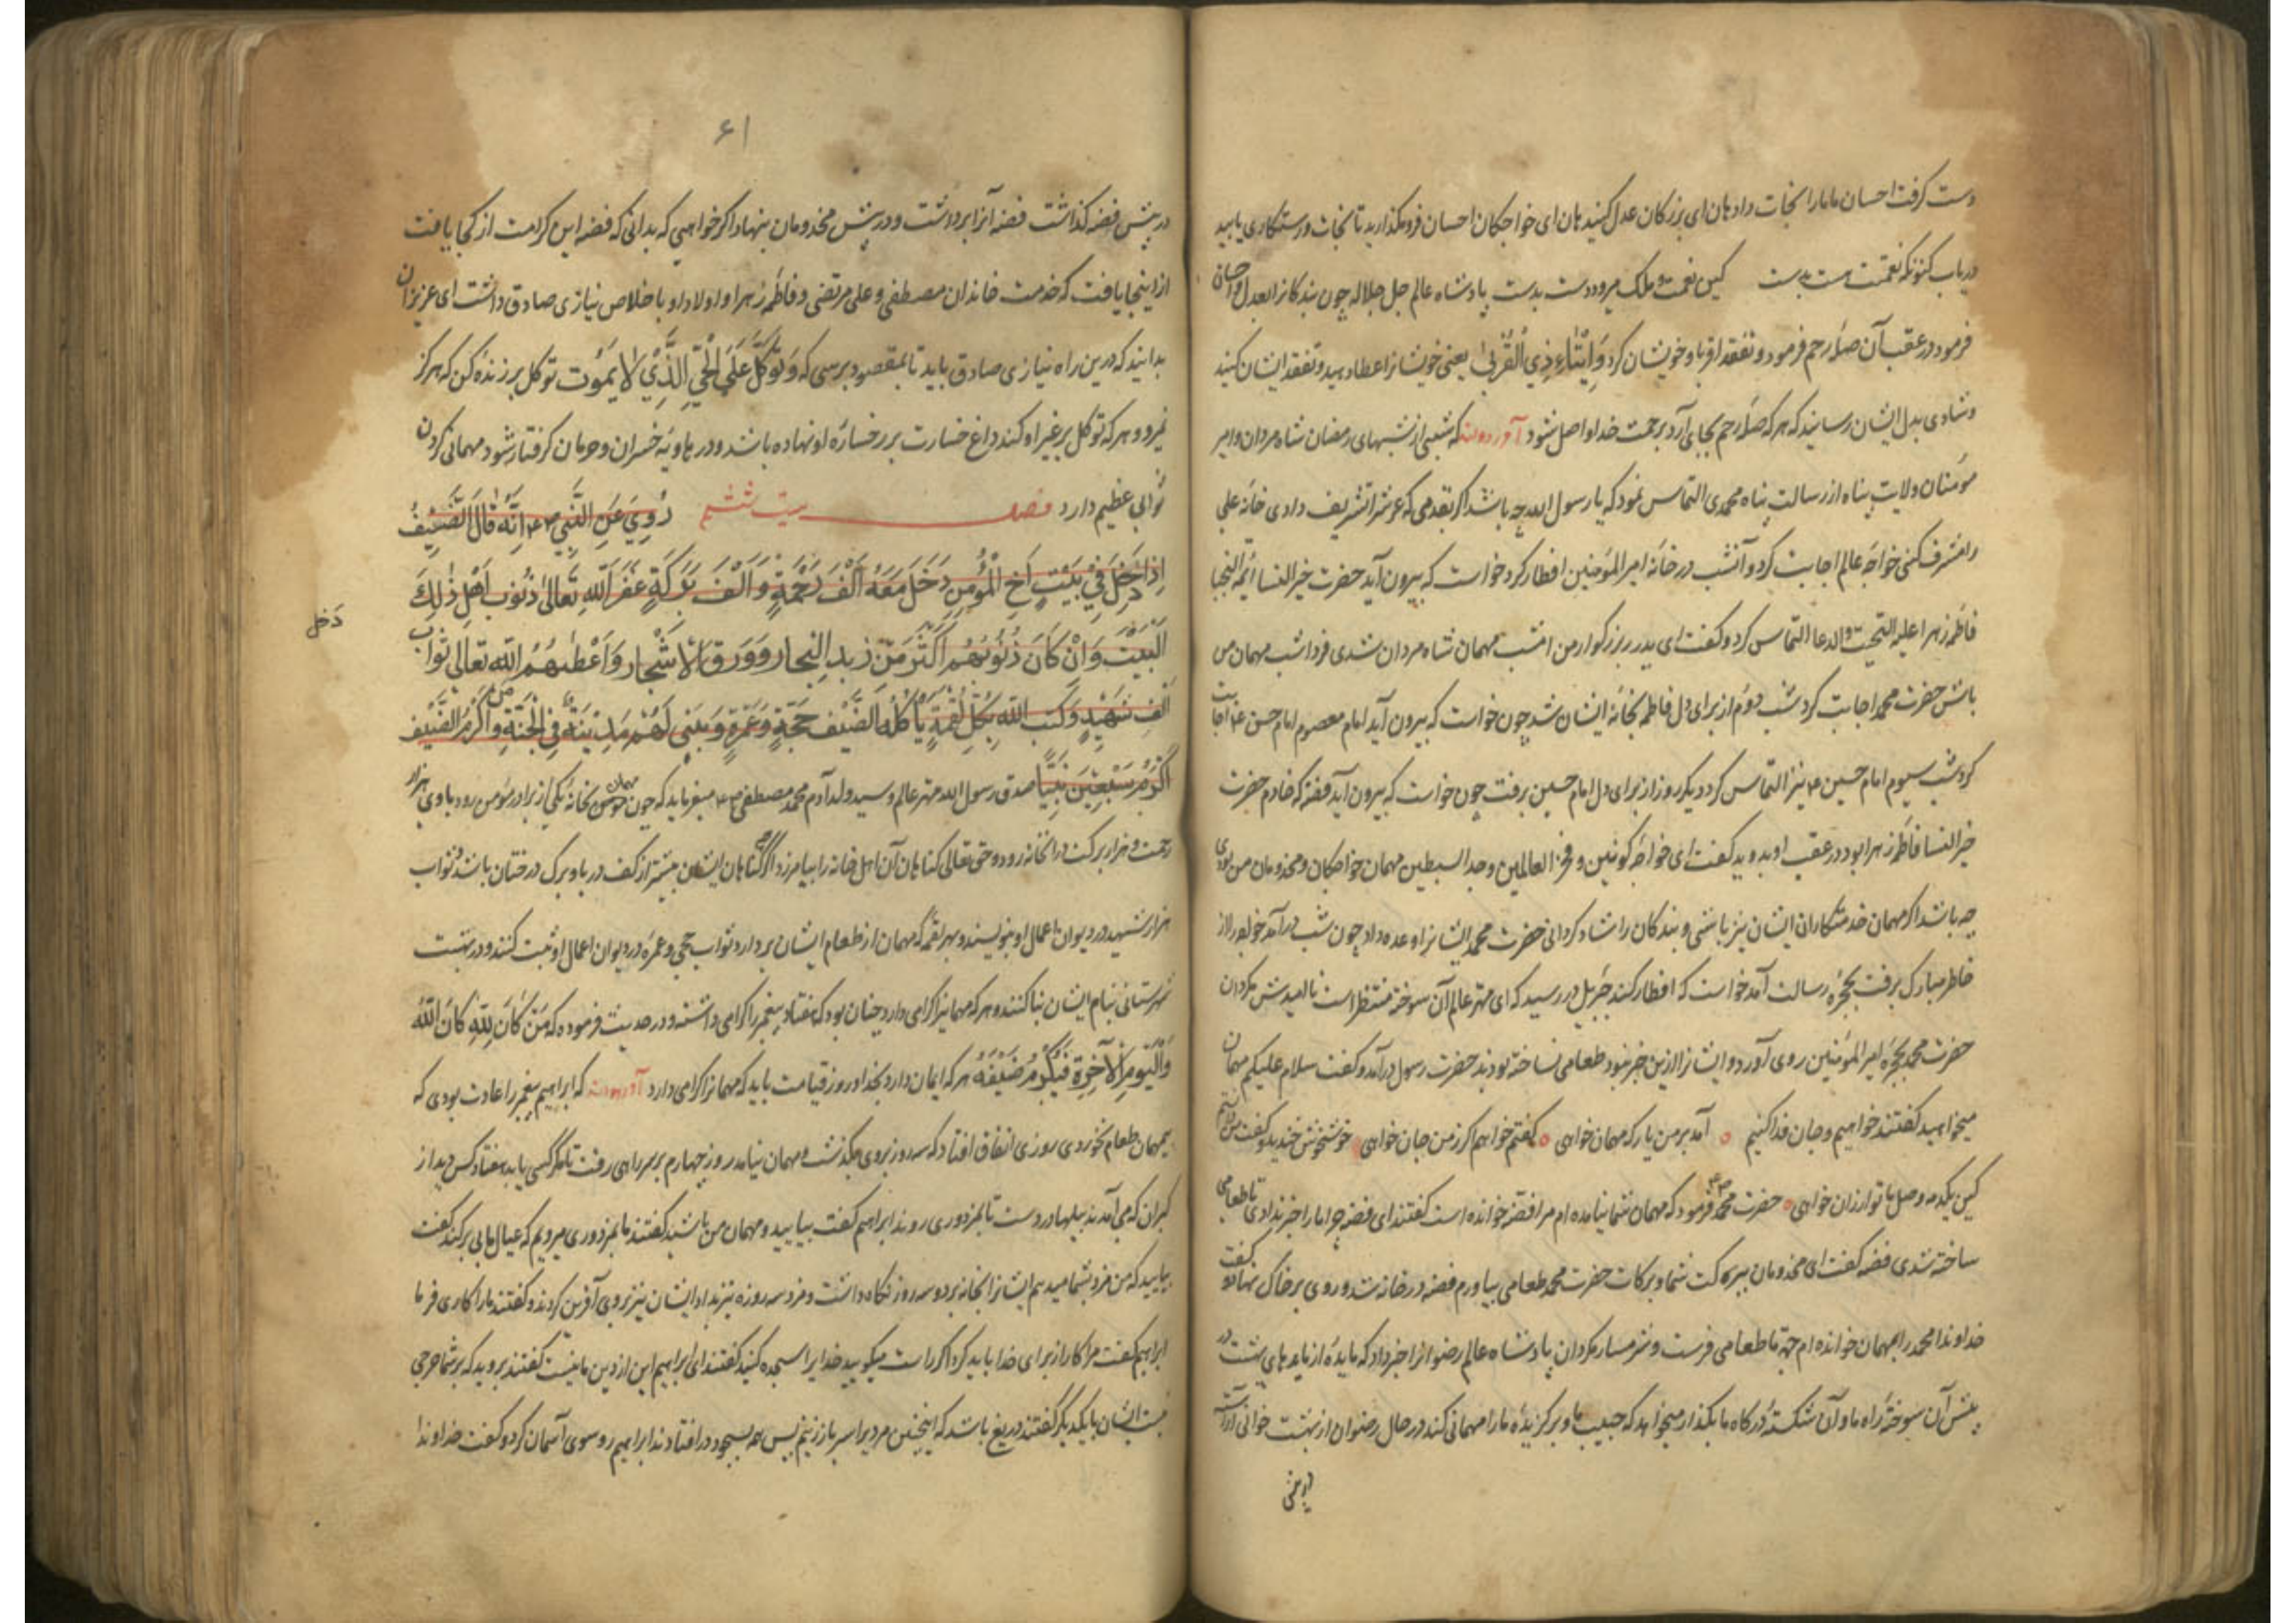 دست کرفت احسان ما مارا نجات داد هان ای بزرکان عدل کنید هان ای خواجکان احسان فرومکذارید تا نجات ورستکاری یابید
دریاب کنونکه نعمتت هست بدست کین نعمت وملک میرود دست بدست پادشاه عالم جل جلاله چون بندکانرا بعدل واحسان
فرمود در عقب آن صلهٔ رحم فرمود وتفقد اقربا وخویشان کرد وَاِیتاءِ ذِي الْقُرْبیٰ یعنی خویشانرا عطا دهید وتفقد ایشان کنید
وشادی بدل ایشان رسانید که هرکه صلهٔ رحم بجای آرد برحمت خدا واصل شود آورده‌اند که شبی از شبهای رمضان شاه مردان وامیر
مؤمنان ولایت پناه از رسالت پناه محمدی التماس نمود که یا رسول الله چه باشد اکر بقدمی که عرش را تشریف دادی خانهٔ علی
را مشرف کنی خواجهٔ عالم اجابت کرد وآنشب در خانهٔ امیر المؤمنین افطار کرد خواست که بیرون آید حضرت خیر النسا ائمة النجبا
فاطمهٔ زهرا علیه التحیت والدعا التماس کرد وکفت ای پدر بزرکوار من امشب مهمان شاه مردان شدی فردا شب مهمان من
باش حضرت محمد اجابت کرد شب دوم از برای دل فاطمه بخانهٔ ایشان شد چون خواست که بیرون آید امام معصوم امام حسن ع اجابت
کرد شب سیوم امام حسین ع نیز التماس کرد دیکر روز از برای دل امام حسین برفت چون خواست که بیرون آید فضه که خادم حضرت
خیر النسا فاطمهٔ زهرا بود در عقب او بدوید کفت ای خواجهٔ کونین وفخر العالمین وجد السبطین مهمان خواجکان ومخدومان من بودی
چه باشد اکر مهمان خدمتکاران ایشان نیز باشی وبندکان را شاد کردانی حضرت محمد ایشانرا وعده داد چون شب درآمد خواجه را از
خاطر مبارک برفت بحجرهٔ رسالت آمد خواست که افطار کند جبرئیل در رسید که ای مهتر عالم آن سوخته منتظر است ناامیدش مکردان
حضرت محمد بحجرهٔ امیر المؤمنین روی آورد وایشانرا ازین خبر نبود طعامی نساخته بودند حضرت رسول درآمد وکفت سلام علیکم مهمان
میخواهید کفتند خواهیم وجان فدا کنیم آمد بر من یار که مهمان خواهی کفتم خواهم اکر زمن جان خواهی خوشخوش خندید وکفت
کین یکدمه وصل ما تو ارزان خواهی حضرت محمد فرمود که مهمان شما نیامده‌ام مرا فضه خوانده است کفتند ای فضه چرا ما را خبر ندادی تا طعامی
ساخته شدی فضه کفت ای مخدومان ببرکت شما وبرکات حضرت محمد طعامی بیاورم فضه در خانه شد وروی بر خاک نهاد وکفت
خداوندا محمد را مهمان خوانده‌ام جهة ما طعامی فرست وشرمسار مکردان پادشاه عالم رضوانرا خبر داد که مایدهٔ از مایدهای بهشت در
پیش آن سوختهٔ راه ما وآن شکستهٔ درکاه ما بکذار میخواهد که حبیب ما وبرکزیدهٔ ما را مهمانی کند در حال رضوان از بهشت خوانی آراسته
در پیش
۶۱
در پیش فضه کذاشت فضه آنرا برداشت ودر پیش مخدومان بنهاد اکر خواهی که بدانی که فضه این کرامت از کجا یافت
از اینجا یافت که خدمت خاندان مصطفی وعلی مرتضی وفاطمهٔ زهرا واولاد او باخلاص نیازی صادق داشت ای عزیزان
بدانید که درین راه نیازی صادق باید تا بمقصود برسی که وَتَوَكَّلْ عَلَی الْحَيِّ الَّذِي لَا يَمُوتُ توکل بر زندهٔ کن که هرکز
نمیرد وهرکه توکل بر غیر او کند داغ خسارت بر رخسارهٔ او نهاده باشد ودر هاویهٔ خسران وحرمان کرفتار شود مهمانی کردن
ثوابی عظیم دارد فصل بیست ششم رُوِيَ عَنِ النَّبِيِّ صلعم اَنَّهُ قَالَ الضَّيْفُ
اِذَا دَخَلَ فِي بَيْتِ اَخِ الْمُؤْمِنِ دَخَلَ مَعَهُ اَلْفُ رَحْمَةٍ وَاَلْفُ بَرَكَةٍ غَفَرَ اللّٰهُ تَعَالیٰ ذُنُوبَ اَهْلِ ذٰلِكَ
دَخَلَ
الْبَيْتِ وَاِنْ كَانَ ذُنُوبُهُمْ اَكْثَرَ مِنْ زَبَدِ الْبِحَارِ وَوَرَقِ الْاَشْجَارِ وَاَعْطٰهُمُ اللّٰهُ تَعَالیٰ ثَوَابَ
اَلْفِ شَهِيدٍ وَكَتَبَ اللّٰهُ بِكُلِّ لُقْمَةٍ يَأْكُلُهُ الضَّيْفُ حَجَّةً وَعُمْرَةً وَبَنیٰ لَهُمْ مَدِينَةً فِي الْجَنَّةِ وَاَكْرَمَ الضَّيْفَ
اَكْرَمَ سَبْعِينَ نَبِيًّا صدق رسول الله مهتر عالم وسید ولد آدم محمد مصطفی صلعم میفرماید که چون مهمان بخانهٔ یکی از برادر مؤمن رود با وی هزار
رحمت وهزار برکت در آنخانه رود وحق تعالی کناهان آن اهل خانه را بیامرزد اکرچه کناهان ایشان بیشتر از کف دریا وبرک درختان باشد وثواب
هزار شهید در دیوان اعمال او بنویسند وبهر لقمه که مهمان از طعام ایشان بردارد ثواب حجی وعمرهٔ در دیوان اعمال او ثبت کنند ودر بهشت
شهرستانی بنام ایشان بنا کنند وهرکه مهمانرا کرامی دارد چنان بود که هفتاد پیغمبر را کرامی داشته ودر حدیث فرموده که مَنْ كَانَ لِلّٰهِ كَانَ اللّٰهُ
وَالْيَوْمِ الْآخِرَةِ فَلْيُكْرِمْ ضَيْفَهُ هرکه ایمان دارد بخدا وروز قیامت باید که مهمانرا کرامی دارد آورده‌اند که ابراهیم پیغمبر را عادت بودی که
بیمهمان طعام نخوردی روزی اتفاق افتاد که سه روز بروی بکذشت ومهمان نیامد روز چهارم بر سر راهی رفت تا مکر کسی یابد هفتاد کس دید از
کبران که می‌آمدند بیلها در دست تا بمزدوری روند ابراهیم کفت بیایید ومهمان من باشید کفتند ما بمزدوری میرویم که عیال ما بی برکند کفت
بیایید که من مزد بشما میدهم ایشانرا بخانه برد وسه روز نکاه داشت ومزد سه روزه نیز بداد ایشان نیز بر وی آفرین کردند وکفتند مارا کاری فرما
ابراهیم کفت مرا کار از برای خدا باید کرد اکر راست میکویید خدایرا سجده کنید کفتند ای ابراهیم این از دین ما نیست کفتند بروید که بر شما حرجی
نیست ایشان با یکدیکر کفتند دریغ باشد که اینچنین مردیرا سر باز زنیم پس همه بسجود درافتادند ابراهیم رو سوی آسمان کرد وکفت خداوندا